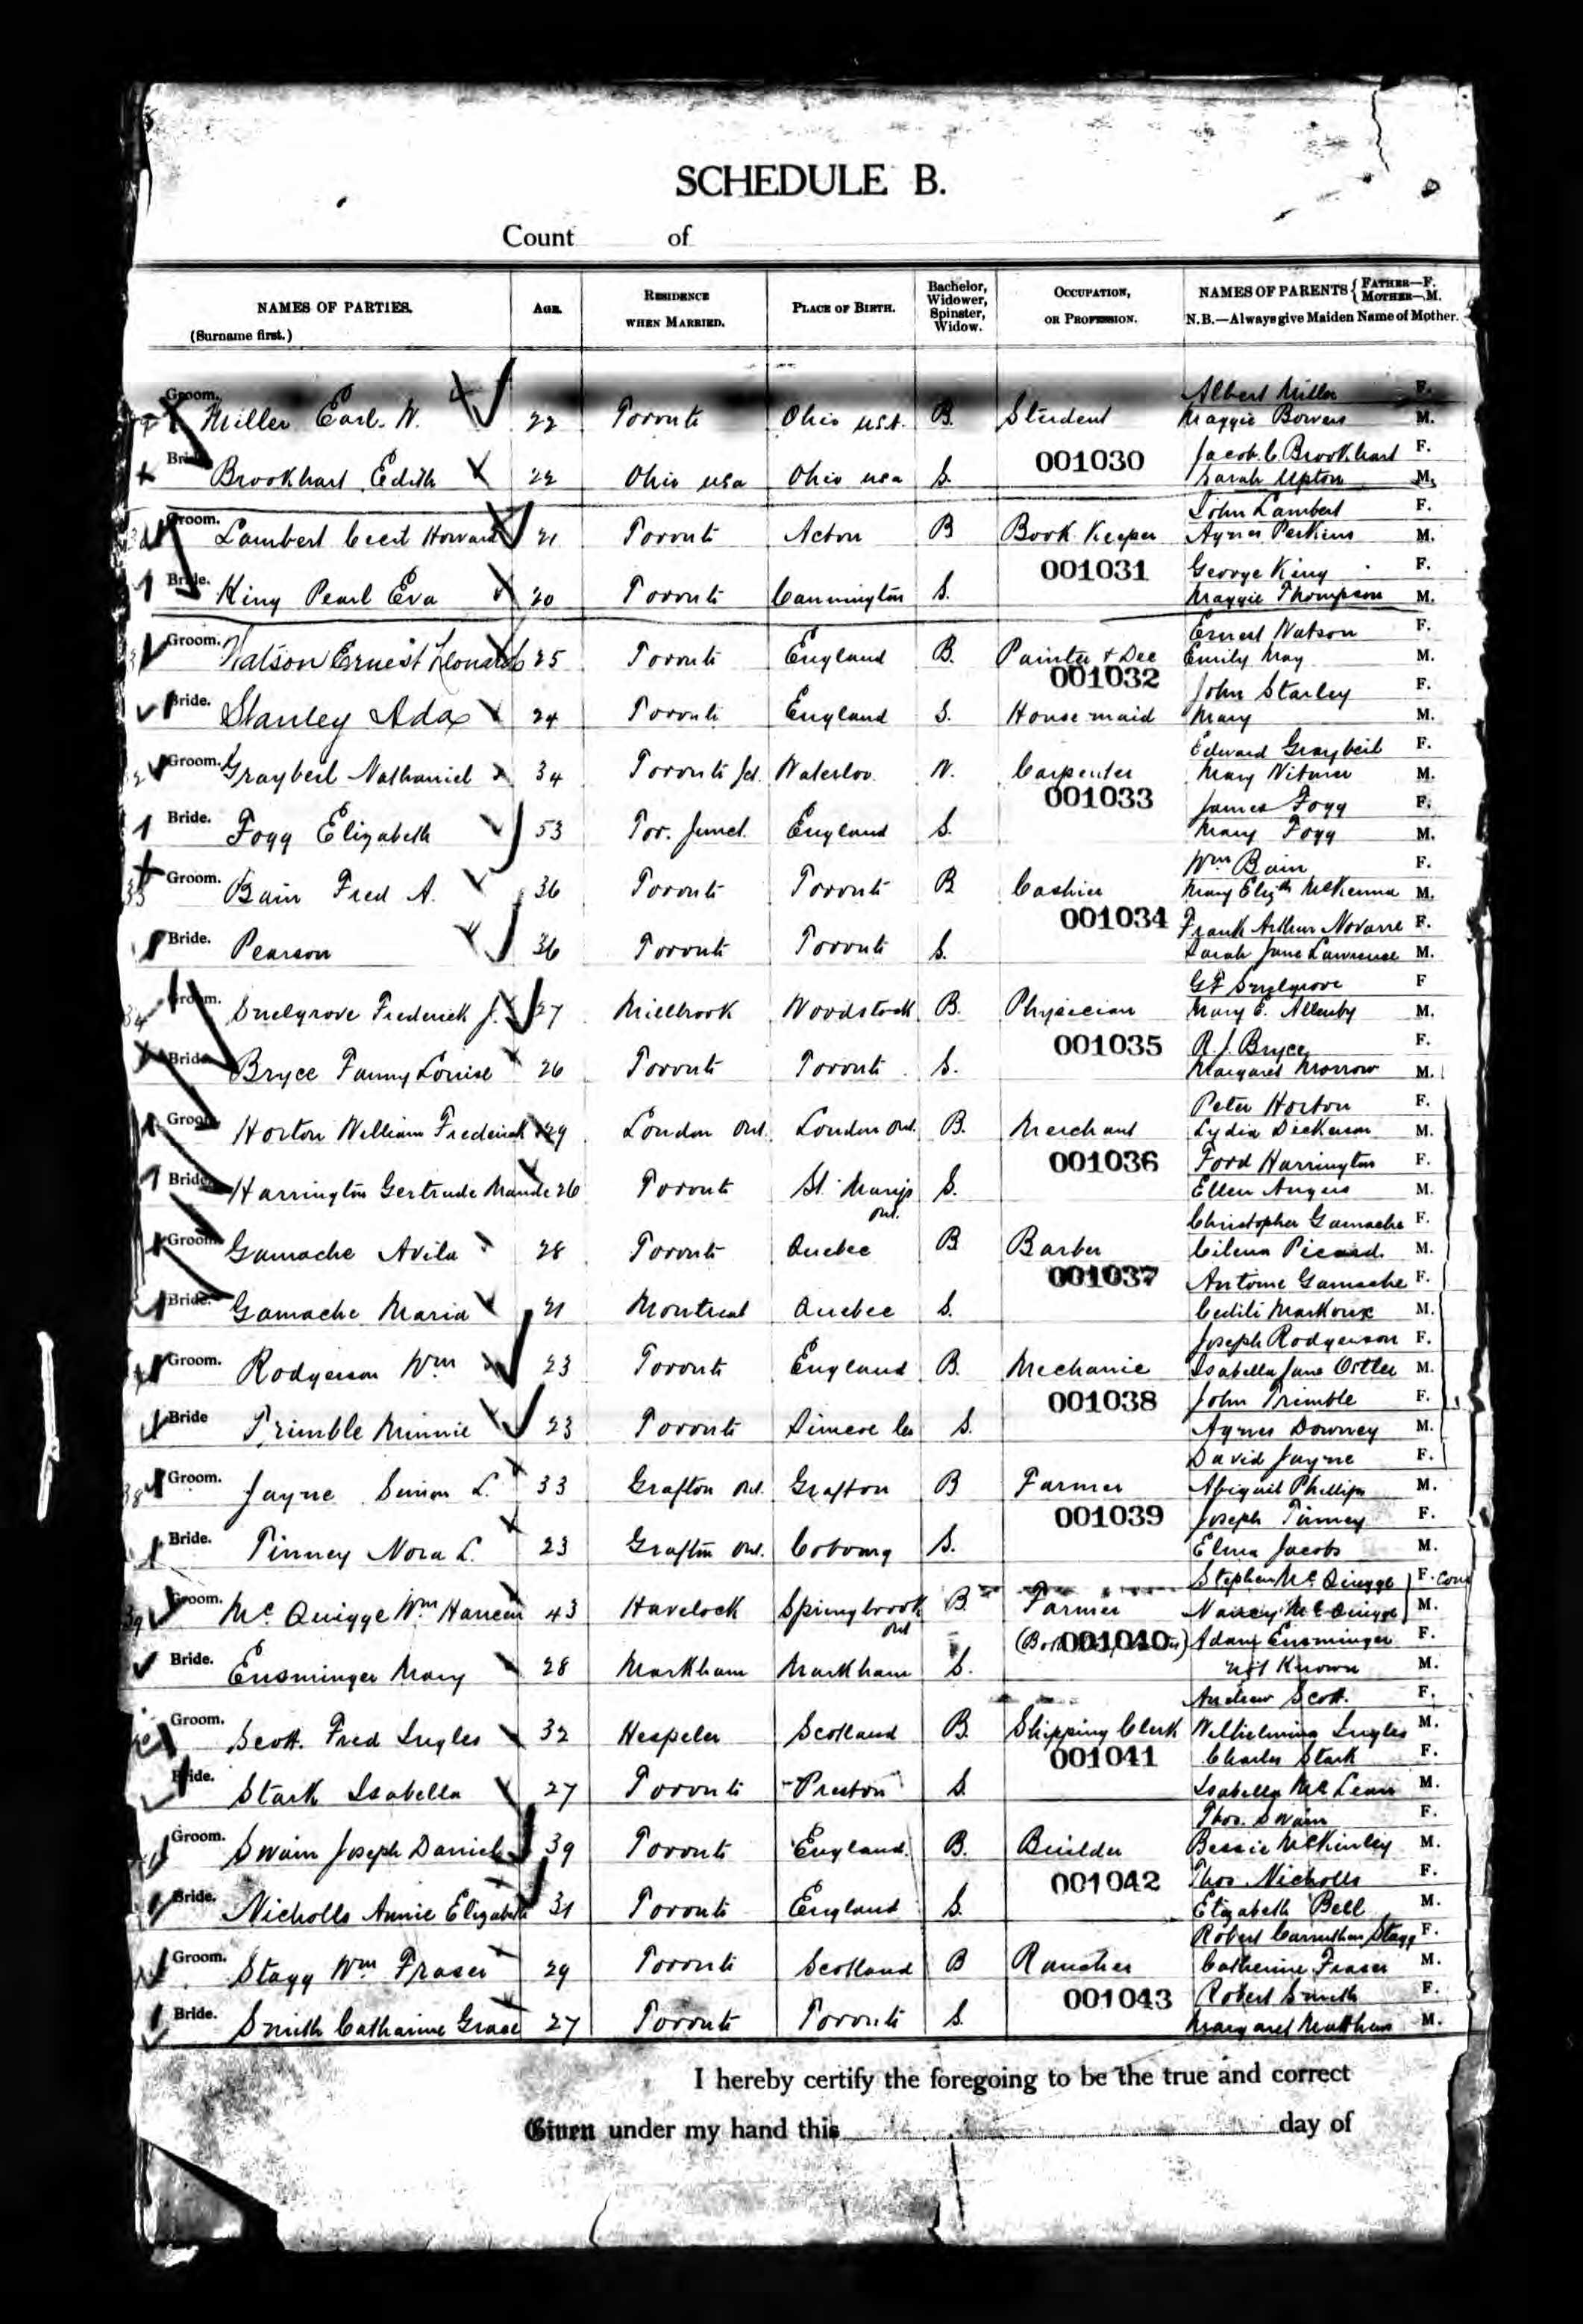 SCHEDULE B.
Count of
NAMES OF PARTIES.
(Surname first.)
AGE.
RESIDENCE
WHEN MARRIED.
PLACE OF BIRTH.
Bachelor,
Widower,
Spinster,
Widow.
OCCUPATION,
OR PROFESSION.
NAMES OF PARENTS { FATHER—F.
MOTHER—M.
N.B.—Always give Maiden Name of Mother.
Albert Miller F.
Groom. Miller Earl. W. 22 Toronto Ohio USA. B. Student Maggie Bowers M.
001030 Jacob C Brookhart F.
Bride. Brookhart Edith 22 Ohio USA Ohio USA S. Sarah Upton M.
John Lambert F.
Groom. Lambert Cecil Howard 21 Toronto Acton B Book Keeper Agnes Perkins M.
001031 George King F.
Bride. King Pearl Eva 20 Toronto Cannington S. Maggie Thompson M.
Ernest Watson F.
Groom. Watson Ernest Leonard 25 Toronto England B. Painter & Dec Emily May M.
001032 John Stanley F.
Bride. Stanley Ada 24 Toronto England S. House maid Mary M.
Edward Graybeil F.
Groom. Graybeil Nathaniel 34 Toronto Jct. Waterloo. W. Carpenter Mary Witmer M.
001033 James Fogg F.
Bride. Fogg Elizabeth 53 Tor. Junct. England S. Mary Fogg M.
Wm Bain F.
Groom. Bain Fred A. 36 Toronto Toronto B Cashier Mary Elizth McKenna M.
001034 Frank Arthur Novarre F.
Bride. Pearson 36 Toronto Toronto S. Sarah Jane Lawrence M.
GF Snelgrove F
Groom. Snelgrove Frederick J. 27 Millbrook Woodstock B. Physician Mary E. Allenby M.
001035 R. J. Bryce F.
Bride. Bryce Fanny Louise 26 Toronto Toronto S. Margaret Morrow M.
Peter Horton F.
Groom. Horton William Frederick 29 London Ont. London Ont. B. Merchant Lydia Dickerson M.
001036 Ford Harrington F.
Bride. Harrington Gertrude Maude 26 Toronto St. Marys Ont. S. Ellen Angus M.
Christopher Gamache F.
Groom. Gamache Avila 28 Toronto Quebec B Barber Picard. M.
001037 Antoine Gamache F.
Bride. Gamache Maria 21 Montreal Quebec S. M.
Joseph Rodgerson F.
Groom. Rodgerson Wm 23 Toronto England B. Mechanic Isabella Jane Ostler M.
001038 John Trimble F.
Bride Trimble Minnie 23 Toronto Simcoe Co S. Agnes Downey M.
David Jayne F.
Groom. Jayne Simon L. 33 Grafton Ont. Grafton B Farmer Abigail Phillips M.
001039 Joseph Tinney F.
Bride. Tinney Nora L. 23 Grafton Ont. Cobourg S. Elma Jacobs M.
Stephen McQuigge F.
Groom. McQuigge Wm 43 Havelock Springbrook Ont B. Farmer Nancy McQuigge M.
001040 Adam Ensminger F.
Bride. Ensminger Mary 28 Markham Markham S. not Known M.
Andrew Scott. F.
Groom. Scott. Fred Ingles 32 Hespeler Scotland B. Shipping Clerk Wilhelmina Ingles M.
001041 Charles Stark F.
Bride. Stark Isabella 27 Toronto Preston S. Isabella McLean M.
Thos. Swain F.
Groom. Swain Joseph Daniel 39 Toronto England. B. Builder Bessie McKinley M.
001042 Thos Nicholls F.
Bride. Nicholls Annie Elizabeth 31 Toronto England S. Elizabeth Bell M.
Robert Carruthers Stagg F.
Groom. Stagg Wm Fraser 29 Toronto Scotland B Rancher Catherine Fraser M.
001043 Robert Smith F.
Bride. Smith Catharine Grace 27 Toronto Toronto S. Margaret Matthews M.
I hereby certify the foregoing to be the true and correct
Given under my hand this day of